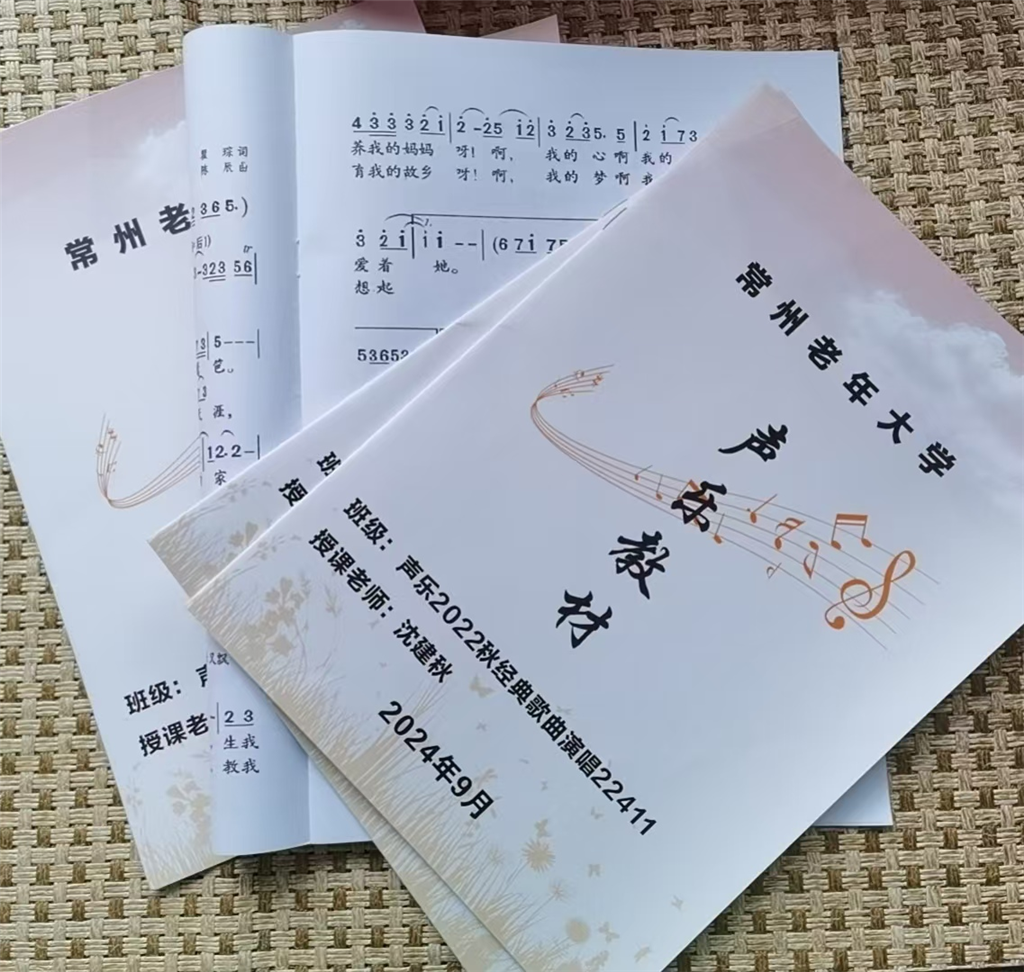 常州老年大学
声乐教材
班级：声乐2022秋经典歌曲演唱22411
授课老师：沈建秋
2024年9月
班
授
常州老
班级：声
授课老
琮词
辰曲
2 3 6 5. )
后1)
tr
3-323 56|
5---|
笆。
涯，
|12.2-|
家
2 3
生我
教我
4 3 3 3 2 1 | 2 -25 1 2 | 3 2 3 5. 5 | 2 1 7 3
养我的妈妈 呀！啊， 我的 心啊 我的
育我的故乡 呀！啊， 我的 梦啊 我
3 2 1 | 1 1 - - | (6 7 1 7 5
爱着 她。
想起
5 3 6 5 3